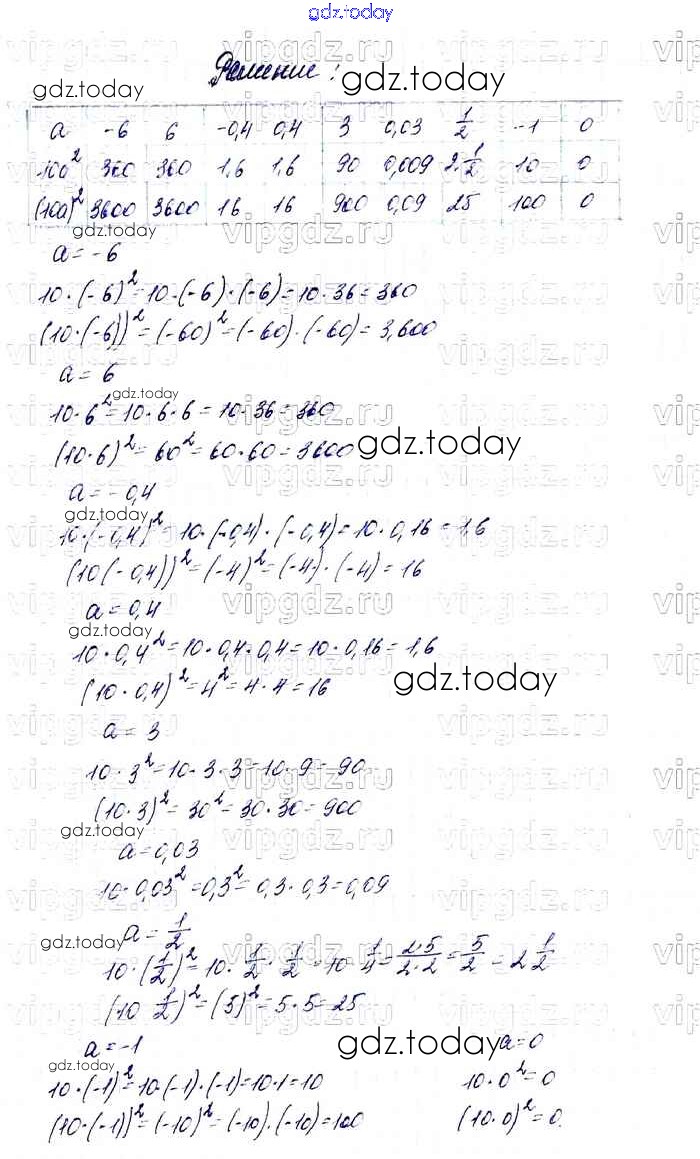 gdz.today
Решение:
gdz.today
gdz.today
a -6 6 -0,4 0,4 3 0,03 1/2 -1 0
10a² 360 360 1,6 1,6 90 0,009 2·1/2 10 0
(10a)² 3600 3600 16 16 900 0,09 25 100 0
gdz.today
vipgdz.ru
a = -6
10·(-6)²=10·(-6)·(-6)=10·36=360
(10·(-6))²=(-60)²=(-60)·(-60)=3,600
vipgdz.ru
a = 6
gdz.today
10·6²=10·6·6=10·36=360
(10·6)²=60²=60·60=3600
gdz.today
a=-0,4
gdz.today
10·(-0,4)² 10·(-0,4)·(-0,4)=10·0,16=1,6
(10(-0,4))²=(-4)²=(-4)·(-4)=16
a=0,4
vipgdz.ru
gdz.today
10·0,4²=10·0,4·0,4=10·0,16=1,6
(10·0,4)²=4²=4·4=16
gdz.today
a = 3
vipgdz.ru
10·3²=10·3·3=10·9=90
(10·3)²=30²=30·30=900
gdz.today
a=0,03
10·0,03²=0,3²=0,3·0,3=0,09
vipgdz.ru
a = 1/2
gdz.today
10·(1/2)²=10·1/2·1/2=10·1/4=2·5/2·2=5/2=2 1/2
(10 1/2)²=(5)²=5·5=25
a=-1 a=0
gdz.today
gdz.today
10·(-1)²=10·(-1)·(-1)=10·1=10 10·0²=0
(10·(-1))²=(-10)²=(-10)·(-10)=100 (10·0)²=0.
vipgdz.ru